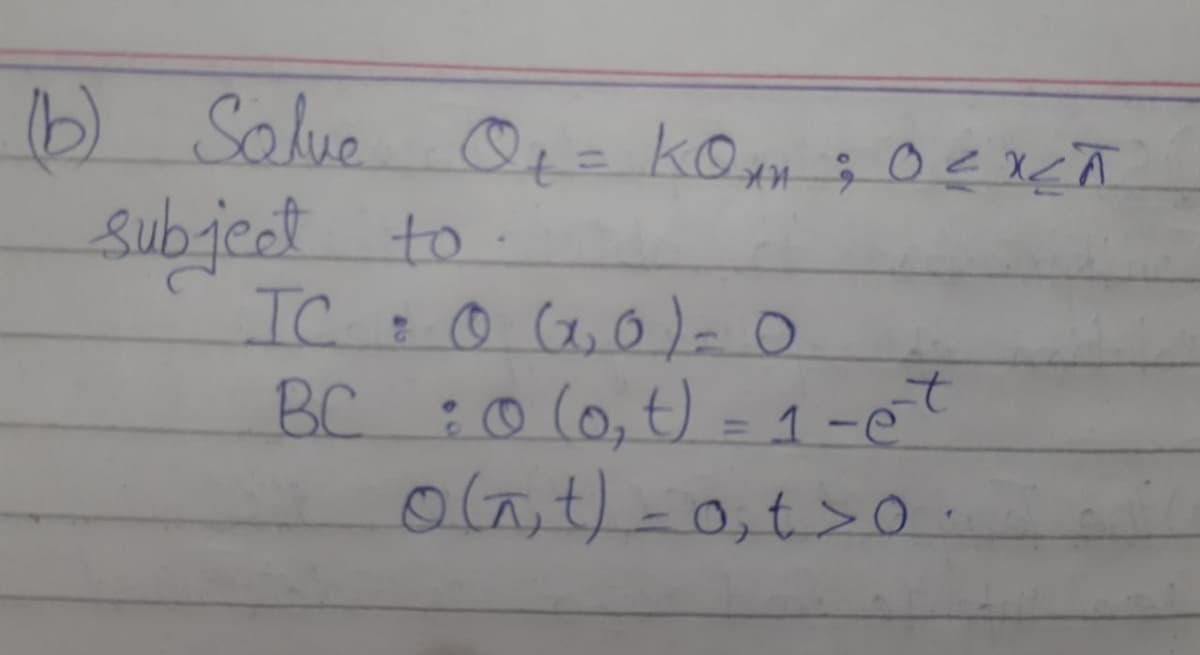 (b) Solve θt = kθxx ; 0 ≤ x ≤ π
subject to.
IC : θ (x, 0) = 0
BC : θ (0, t) = 1 - e^-t
θ(π, t) = 0, t > 0.